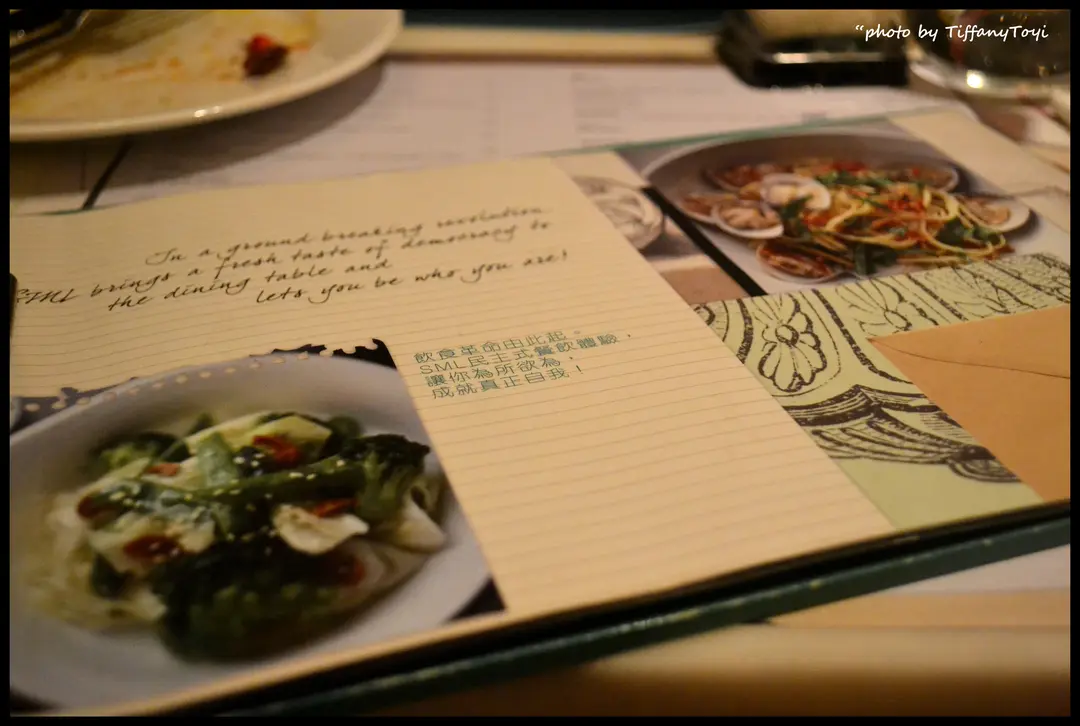 “photo by TiffanyToyi
In a ground breaking revolution
SML brings a fresh taste of democracy to
the dining table and
lets you be who you are!
飲食革命由此起。
SML民主式餐飲體驗，
讓你為所欲為，
成就真正自我！